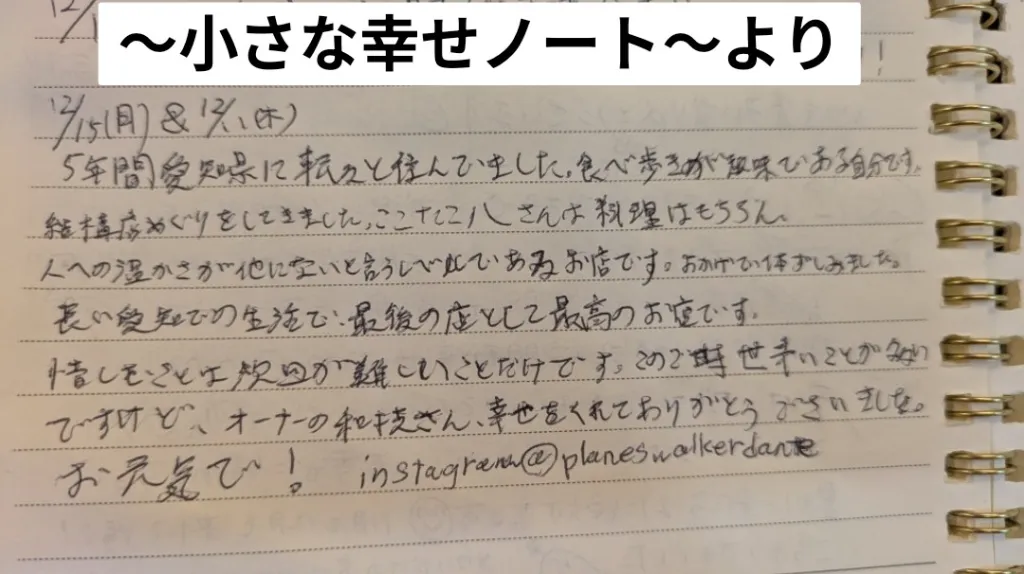 〜小さな幸せノート〜より
12/15(月) & 12/11(木)
5年間愛知県に転々と住んでいました。食べ歩きが趣味である自分です。
結構店めぐりをしてきました。ここたこ八さんは料理はもちろん、
人への温かさが他にないと言うレベルであるお店です。おかげで楽しみました。
長い愛知での生活で、最後の店として最高のお店です。
惜しむことは次回が難しいことだけです。このご時世辛いことが多い
ですけど、オーナーの和枝さん、幸せをくれてありがとうございました。
お元気で! instagram@planeswalkerdante